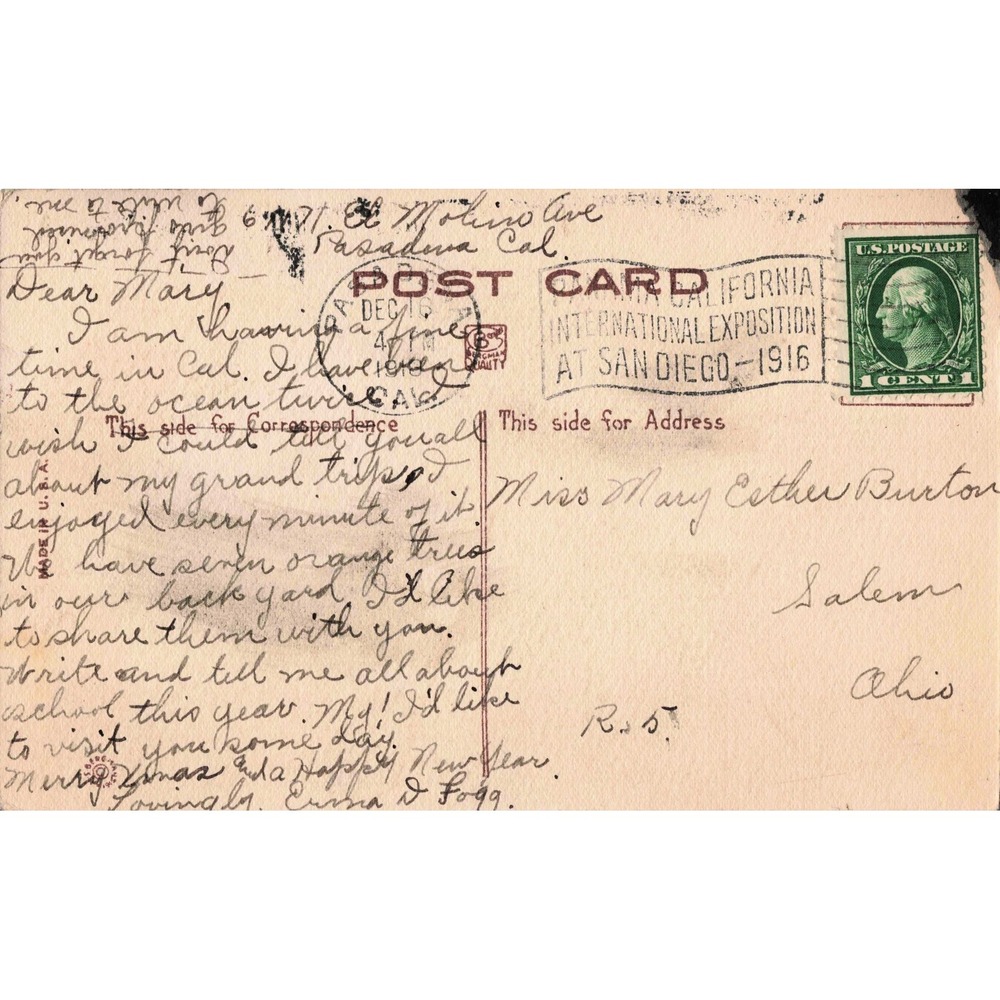 El Molino Ave
Pasadena Cal.
Don't forget you
girls promised
to write to me.
POST CARD
DEC 16
4 PM
CAL.
CALIFORNIA
INTERNATIONAL EXPOSITION
AT SAN DIEGO - 1916
U.S. POSTAGE
1 CENT 1
Dear Mary
I am having a fine
time in Cal. I have been
to the ocean twice. I
wish I could tell you all
about my grand trip, I
enjoyed every minute of it.
We have seven orange trees
in our back yard. I'd like
to share them with you.
Write and tell me all about
school this year. My! I'd like
to visit you some day.
Merry Xmas and a Happy New Year.
Lovingly, Erma D Fogg.
This side for Correspondence
This side for Address
MADE IN U.S.A.
QUALITY
Miss Mary Esther Burton
Salem
Ohio
R. 5.